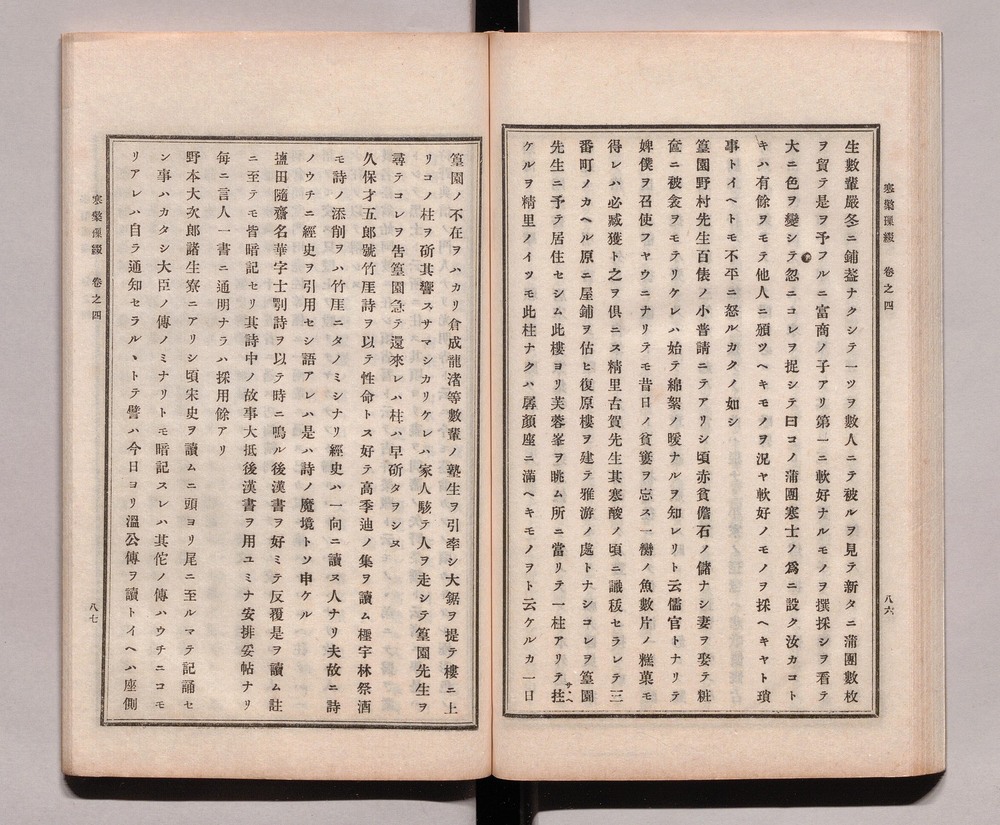 寒檠璅綴　卷之四
八六
生數輩嚴冬ニ鋪葢ナクシテ一ツヲ數人ニテ被ルヲ見テ新タニ蒲團數枚
ヲ貿テ是ヲ予フルニ富商ノ子アリ第一ニ軟好ナルモノヲ撰採シヲ看テ
大ニ色ヲ變シテ忽ニコレヲ捉シテ曰コノ蒲團寒士ノ爲ニ設ク汝カコト
キハ有餘ヲモテ他人ニ頒ツヘキモノヲ況ヤ軟好ノモノヲ採ヘキヤト瑣
事トイヘトモ不平ニ怒ルカクノ如シ
篁園野村先生百俵ノ小普請ニテアリシ頃赤貧儋石ノ儲ナシ妻ヲ娶テ粧
奩ニ被衾ヲモテリケレハ始テ綿絮ノ暖ナルヲ知レリト云儒官トナリテ
婢僕ヲ召使フヤウニナリテモ昔日ノ貧窶ヲ忘ス一臠ノ魚數片ノ糕菓モ
得レハ必臧獲ト之ヲ俱ニス精里古賀先生其寒酸ノ頃ニ識秡セラレテ三
番町ノカヘル原ニ屋鋪ヲ估ヒ復原樓ヲ建テ雅游ノ處トナシコレヲ篁園
先生ニ予テ居住セシム此樓ヨリ芙蓉峯ヲ眺ム所ニ當リテ一柱アリテ拄サヘ
ケルヲ精里ノイツモ此柱ナクハ孱顏座ニ滿ヘキモノヲト云ケルカ一日
篁園ノ不在ヲハカリ倉成龍渚等數輩ノ塾生ヲ引率シ大鋸ヲ提テ樓ニ上
リコノ柱ヲ斫其響スサマシカリケレハ家人駭テ人ヲ走シテ篁園先生ヲ
尋テコレヲ告篁園急テ還來レハ柱ハ早斫タヲシヌ
久保才五郎號竹厓詩ヲ以テ性命トス好テ高季迪ノ集ヲ讀ム檉宇林祭酒
モ詩ノ添削ヲハ竹厓ニタノミシナリ經史ハ一向ニ讀ヌ人ナリ夫故ニ詩
ノウチニ經史ヲ引用セシ語アレハ是ハ詩ノ魔境トソ申ケル
塩田隨齋名華字士鄂詩ヲ以テ時ニ鳴ル後漢書ヲ好ミテ反覆是ヲ讀ム註
ニ至テモ皆暗記セリ其詩中ノ故事大抵後漢書ヲ用ユミナ安排妥帖ナリ
每ニ言人一書ニ通明ナラハ採用餘アリ
野本大次郎諸生寮ニアリシ頃宋史ヲ讀ムニ頭ヨリ尾ニ至ルマテ記誦セ
ン事ハカタシ大臣ノ傳ノミナリトモ暗記スレハ其佗ノ傳ハウチニコモ
リアレハ自ラ通知セラルヽトテ譬ハ今日ヨリ溫公傳ヲ讀トイヘハ座側
寒檠璅綴　卷之四
八七